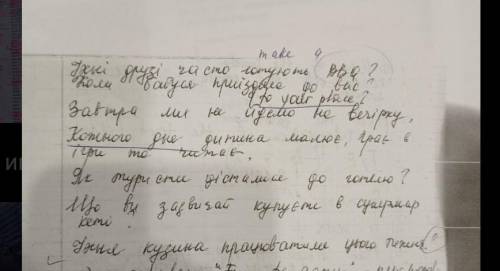 make a
Їхні друзі часто готують BBQ?
Коли бабуся приїздила до вас
(to your place)?
Завтра ми не йдемо на вечірку.
Кожного дня дитина малює, грає в
ігри та читає.
Як туристи дісталися до готелю?
Що ви зазвичай купуєте в супермар
кеті?
Їхня кузина працюватиме цього тижня?